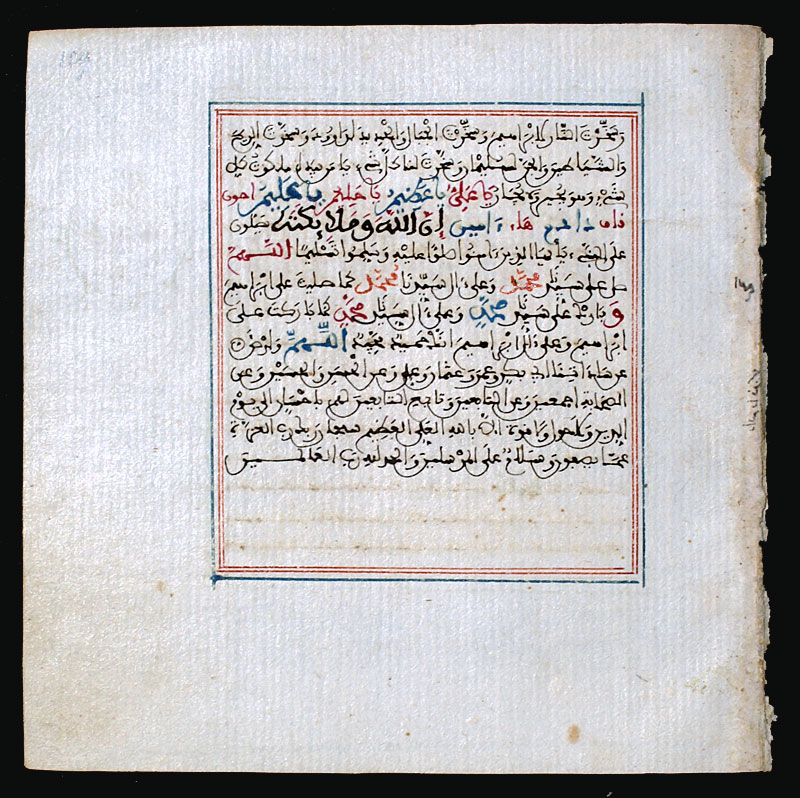 وسخرت النار لابراهيم وسخرت الجبال والحديد لداوود وسخرت الريح
والشياطين والجن لسليمان وسخرت لنا كل شيء يا من بيده ملكوت كل
شيء وهو يجير ولا يجار يا علي يا عظيم يا حليم يا عليم احون
قاف هاء ءامين إن الله وملايكته يصلون
على النبيء يأيها الذين ءامنوا صلوا عليه وسلموا تسليما اللهم
صل على سيدنا محمد وعلى ءال سيدنا محمد كما صليت على ابراهيم
وبارك على سيدنا محمد وعلى ءال سيدنا محمد كما باركت على
ابراهيم وعلى ءال ابراهيم انك حميد مجيد اللهم وارض
عن ابي بكر وعمر وعثمان وعلي وعن الحسن والحسين وعن
الصحابة اجمعين وعن التابعين وتابع التابعين لهم باحسان الى يوم
الدين ولا حول ولا قوة الا بالله العلي العظيم سبحان ربك رب العزة
عما يصفون وسلام على المرسلين والحمد لله رب العالمين